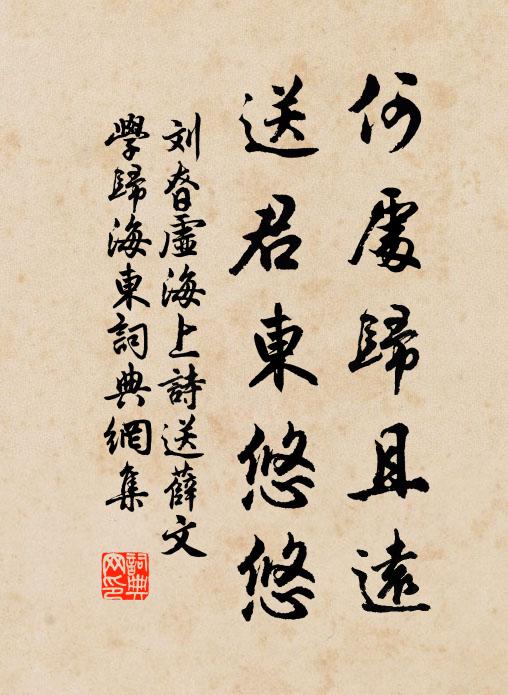 何處歸且遠
送君東悠悠
刘昚虛海上詩送薛文
學歸海東詞典網集
詞典
网印